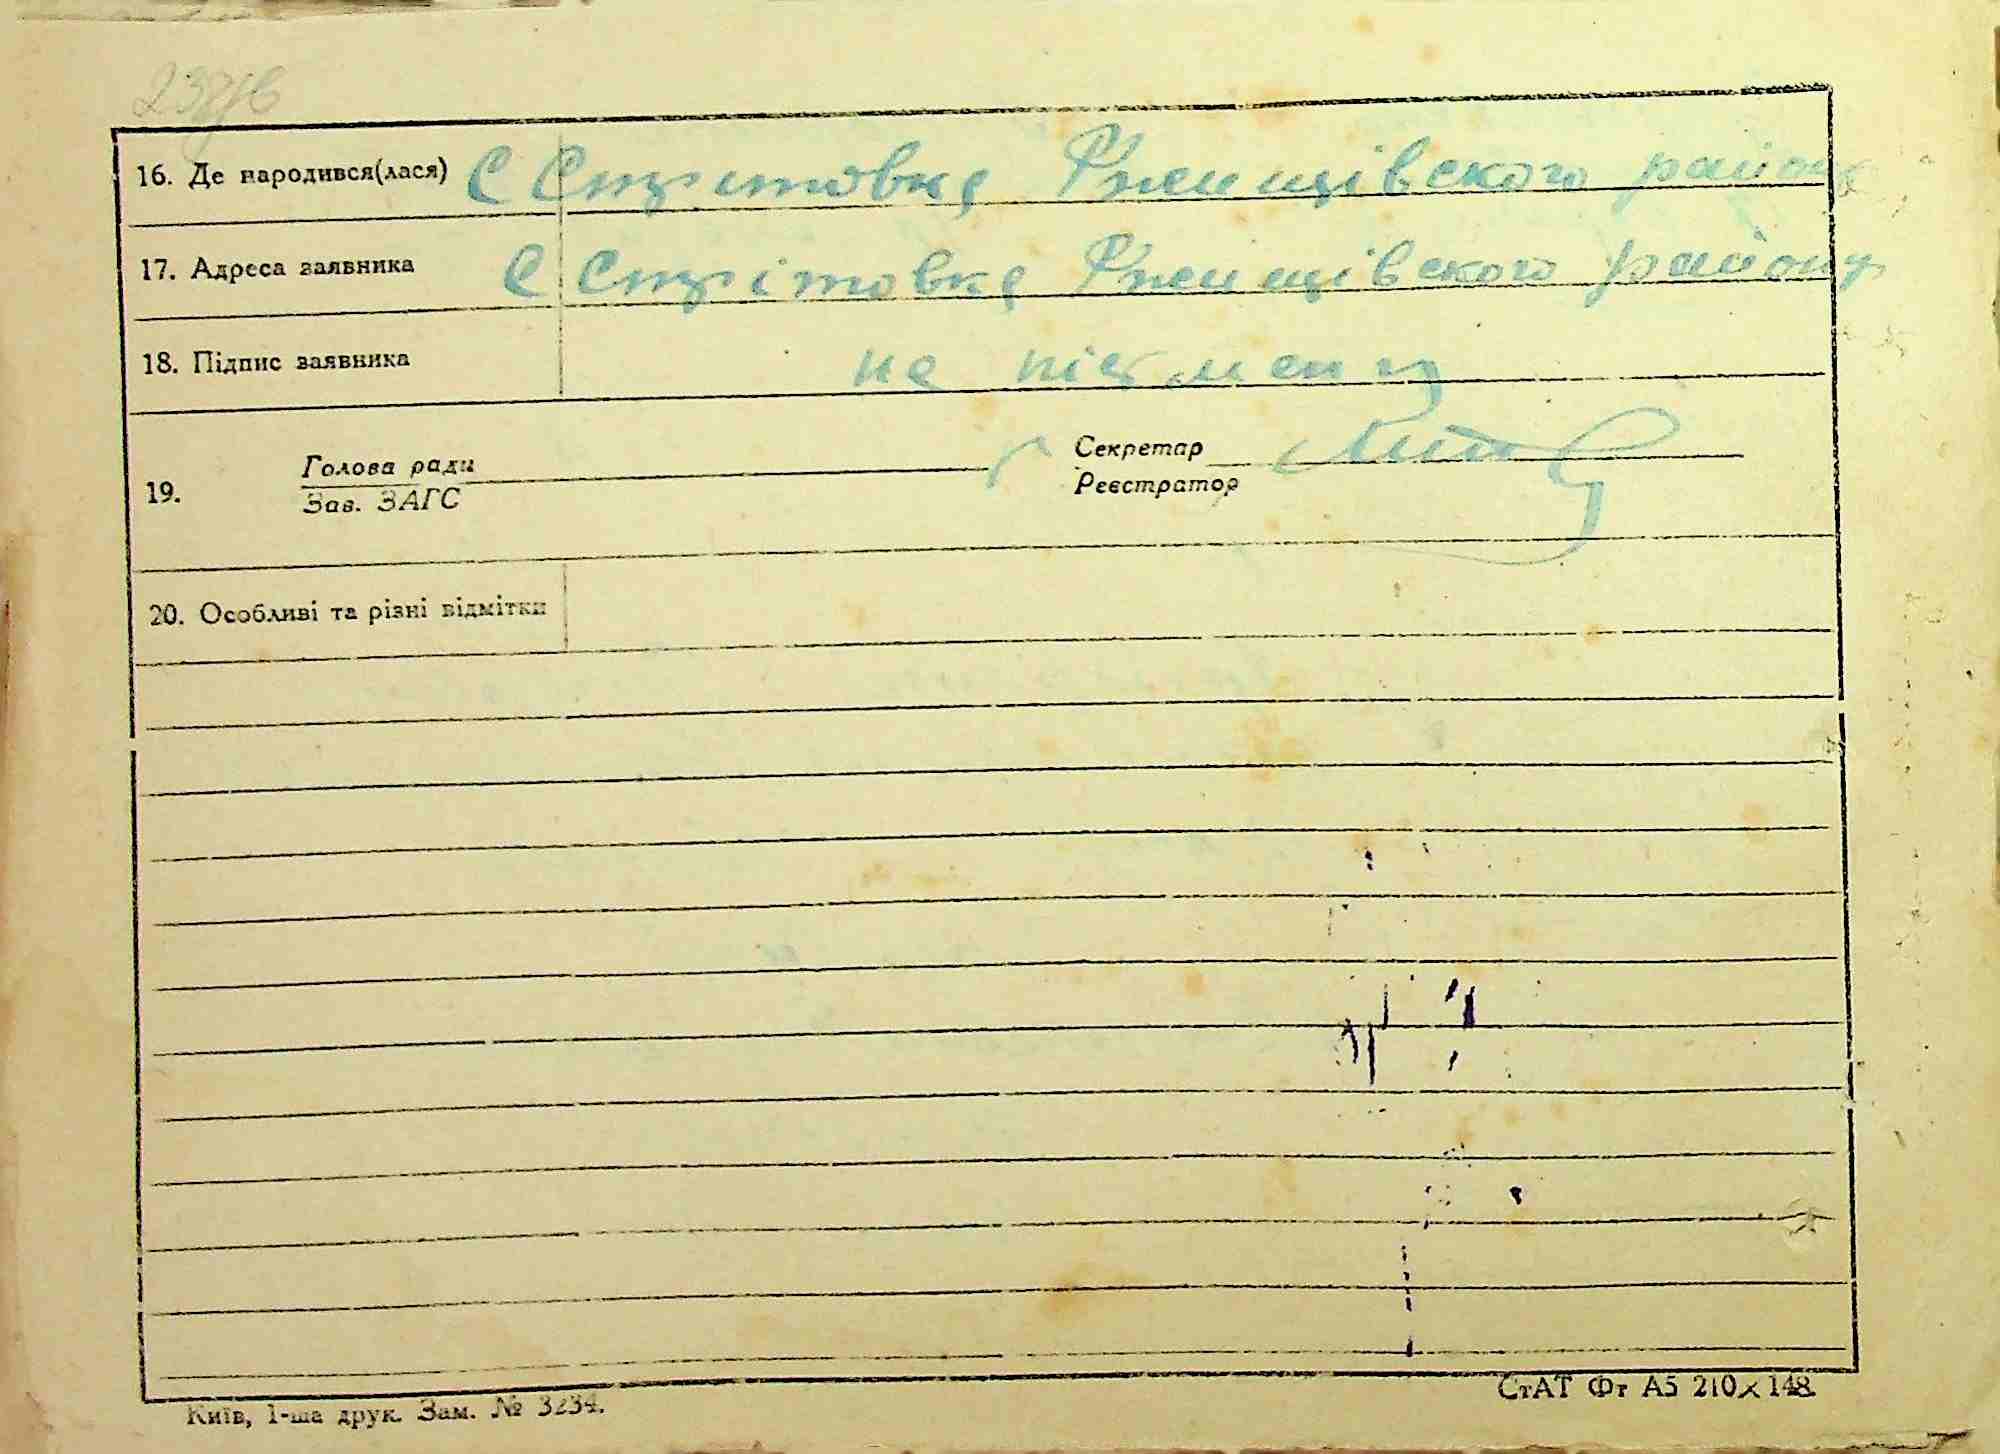 16. Де народився(лася) С Стритовка Ржищівского району
17. Адреса заявника С Стрітовка Ржищівского району
18. Підпис заявника
Голова ради Секретар
19. Зав. ЗАГС Реєстратор
20. Особливі та різні відмітки
Київ, 1-ша друк. Зам. № 3234. СтАТ Фт А5 210×148